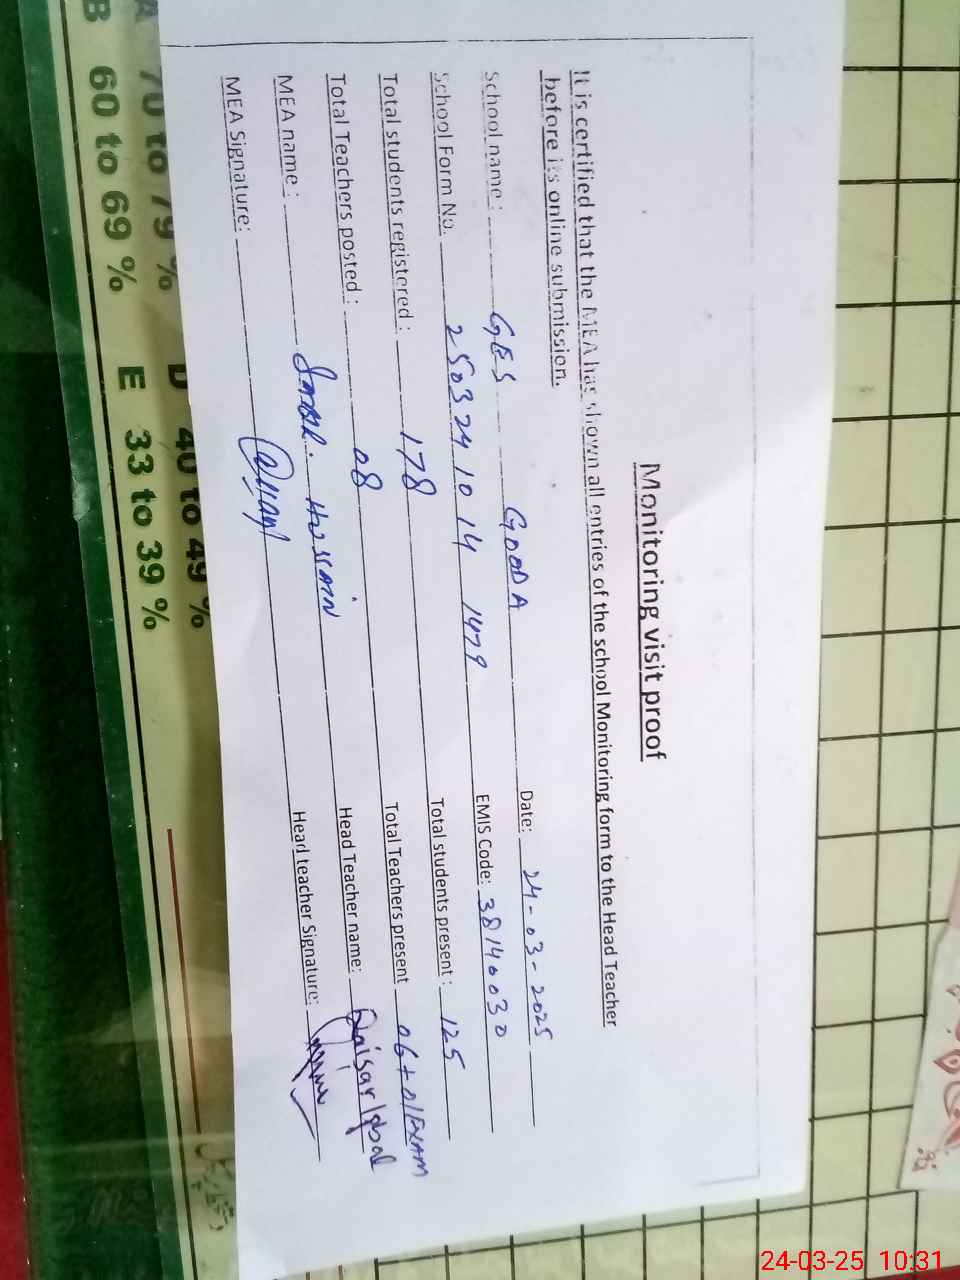 Monitoring visit proof
It is certified that the MEA has shown all entries of the school Monitoring form to the Head Teacher
before its online submission.
School name : GES GOODA Date: 24-03-2025
School Form No. 250324 10 14 1479 EMIS Code: 38140030
Total students registered : 178 Total students present : 125
Total Teachers posted : 08 Total Teachers present 06+01EXAM
MEA name : Hussain Head Teacher name: Qaisar Iqbal
MEA Signature: Head teacher Signature:
A 70 to 79 % D 40 to 49 %
B 60 to 69 % E 33 to 39 %
24-03-25 10:31